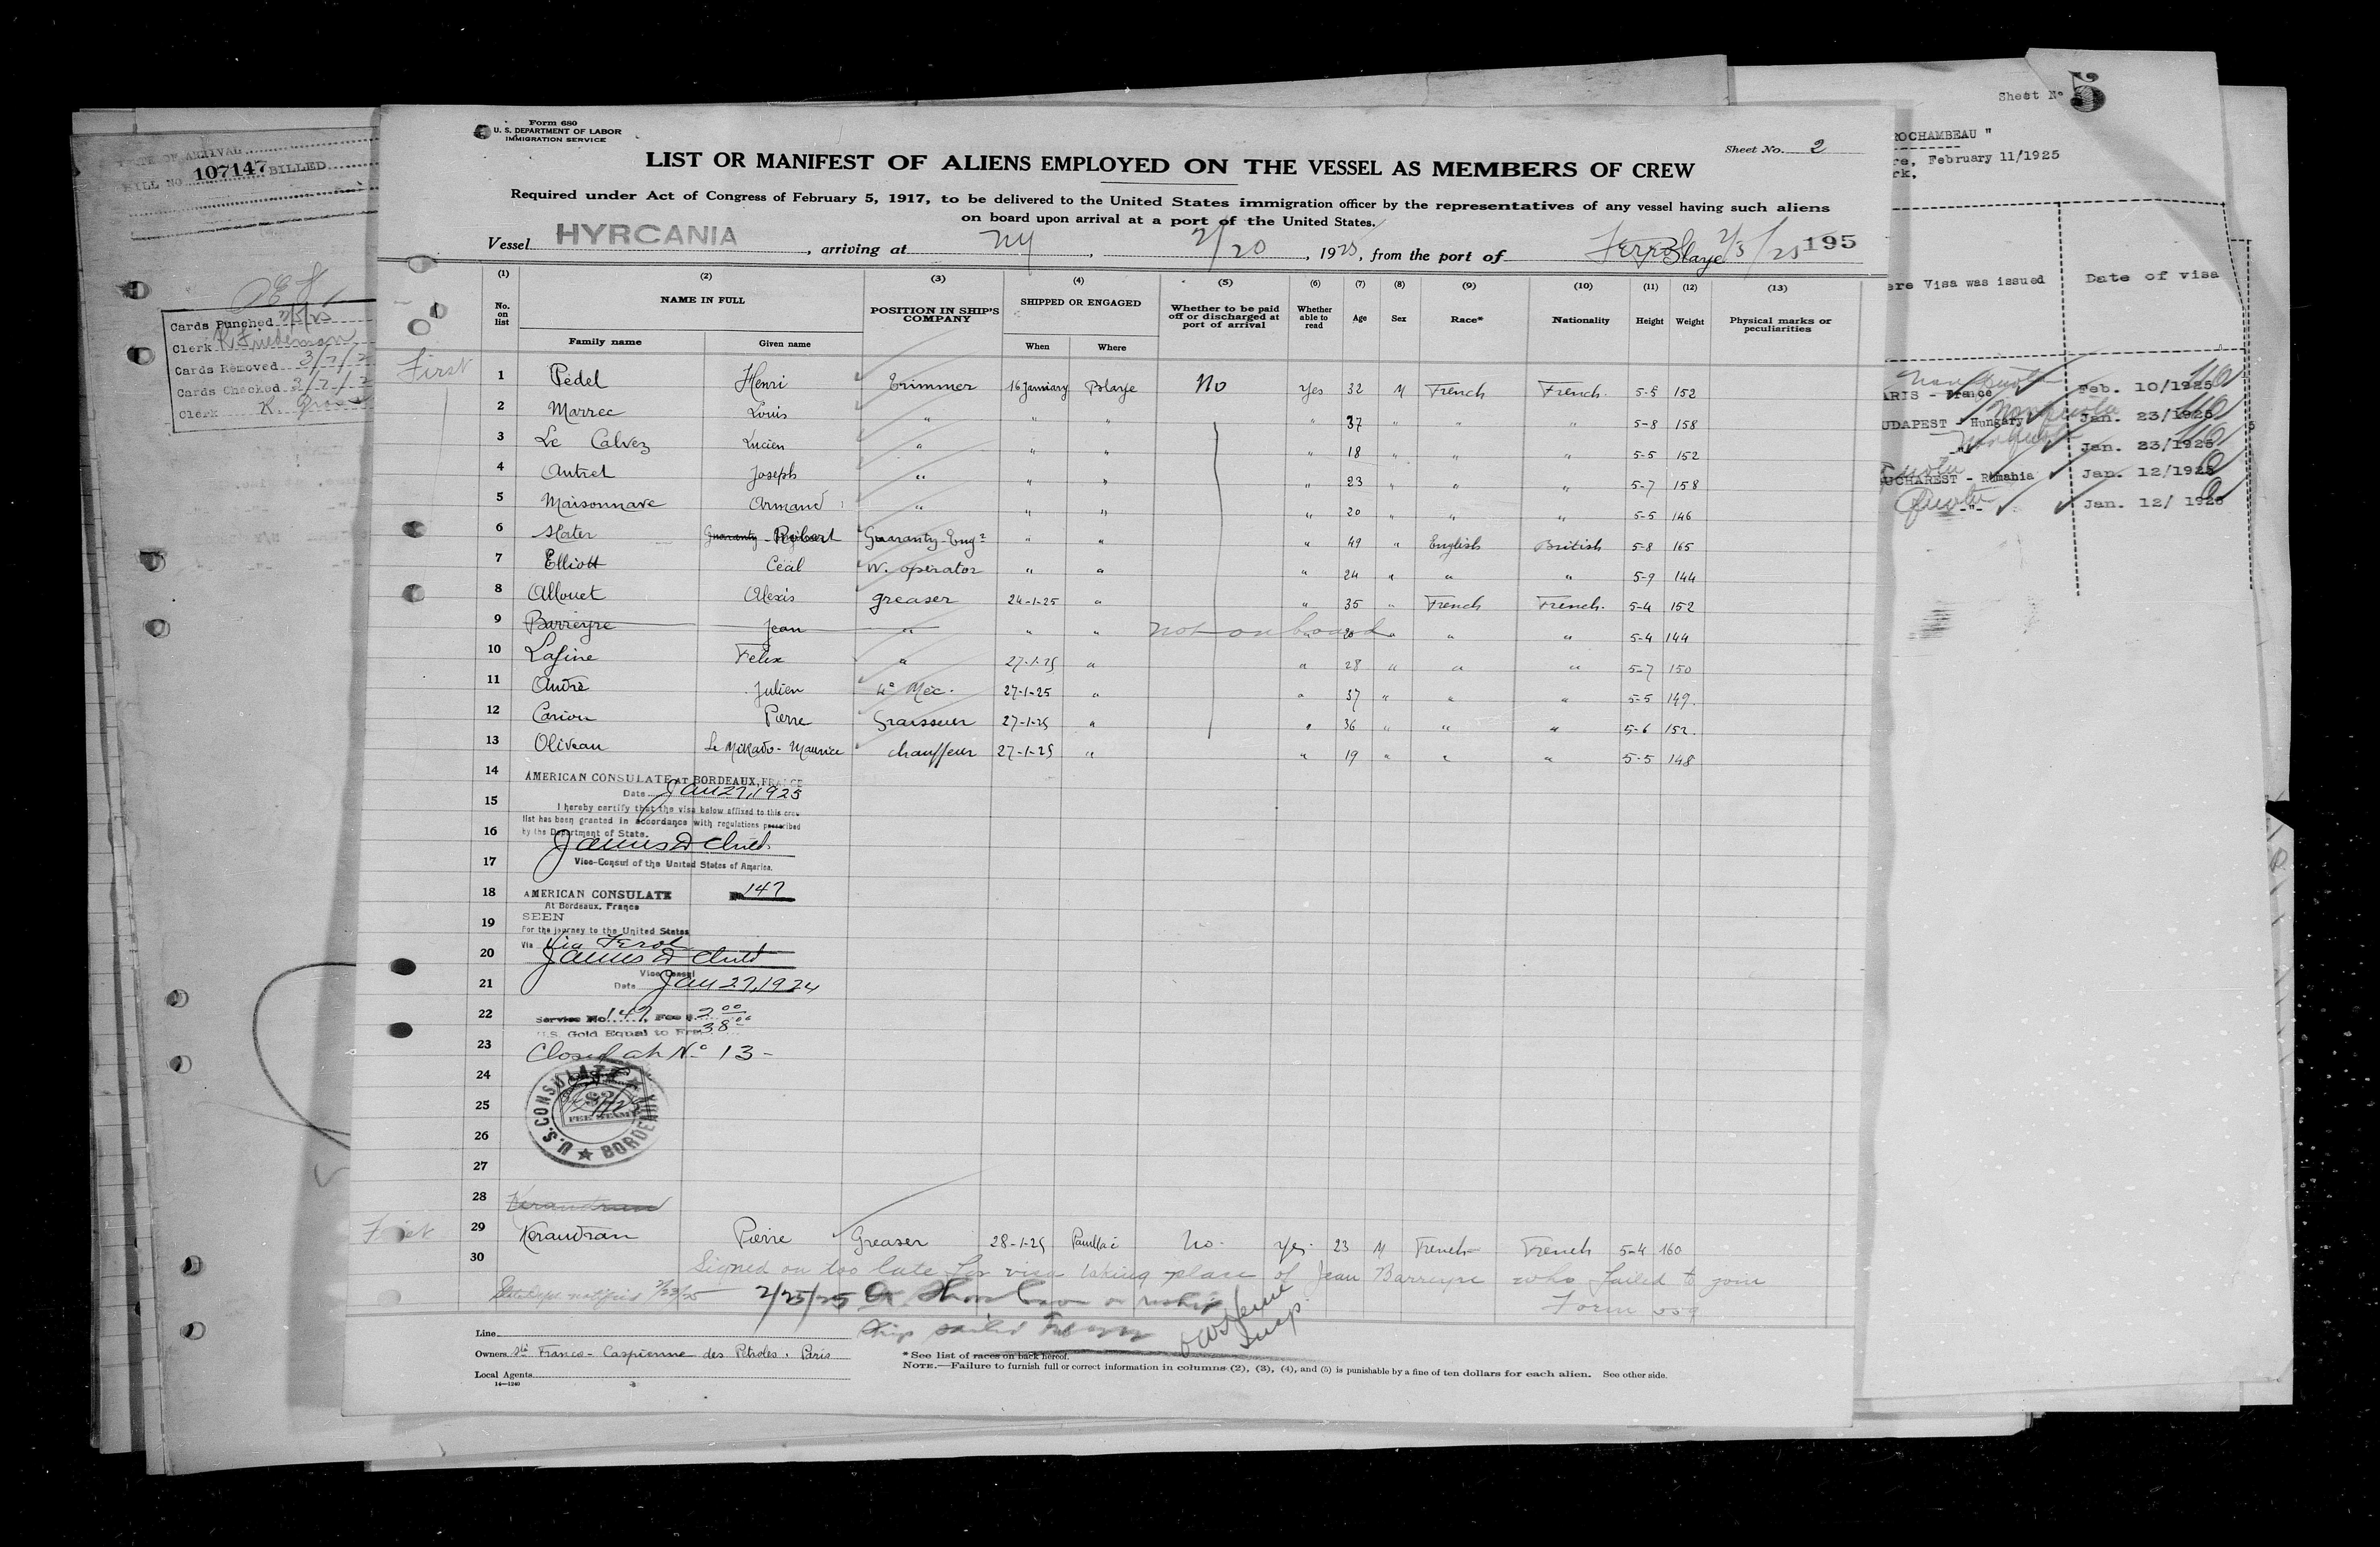 Form 680
U. S. DEPARTMENT OF LABOR
IMMIGRATION SERVICE
Sheet No. 2
LIST OR MANIFEST OF ALIENS EMPLOYED ON THE VESSEL AS MEMBERS OF CREW
Required under Act of Congress of February 5, 1917, to be delivered to the United States immigration officer by the representatives of any vessel having such aliens
on board upon arrival at a port of the United States.
Vessel HYRCANIA, arriving at NY, 2/20, 1925, from the port of Ferrol Blaye 2/3/25 195
(1) (2) (3) (4) (5) (6) (7) (8) (9) (10) (11) (12) (13)
No. on list NAME IN FULL Family name Given name POSITION IN SHIP'S COMPANY SHIPPED OR ENGAGED When Where Whether to be paid off or discharged at port of arrival Whether able to read Age Sex Race* Nationality Height Weight Physical marks or peculiarities
First
1 Pédel Henri Trimmer 16 January Blaye No Yes 32 M French French 5-5 152
2 Marrec Louis " " " " 37 " " " 5-8 158
3 Le Calvez Lucien " " " " 18 " " " 5-5 152
4 Autret Joseph " " " " 23 " " " 5-7 158
5 Maisonnave Armand " " " " 20 " " " 5-5 146
6 Slater Guaranty Robert Guaranty Engr " " " 49 " English British 5-8 165
7 Elliott Cecil W. operator " " " 24 " " " 5-9 144
8 Allouet Alexis greaser 24-1-25 " " 35 " French French. 5-4 152
9 Barreyre Jean " " " not on board " 20 " " " 5-4 144
10 Lafine Felix " 27-1-25 " " 28 " " " 5-7 150
11 André Julien 4e Méc. 27-1-25 " " 37 " " " 5-5 149.
12 Carion Pierre Graisseur 27-1-25 " " 36 " " " 5-6 152.
13 Oliveau Le Mikado-Maurice chauffeur 27-1-25 " " 19 " " " 5-5 148
14 AMERICAN CONSULATE AT BORDEAUX, FRANCE
15 Date Jan 27, 1925
I hereby certify that the visa below affixed to this crew
list has been granted in accordance with regulations prescribed
16 by the Department of State.
James D Child
17 Vice-Consul of the United States of America.
18 AMERICAN CONSULATE 147
At Bordeaux, France
19 SEEN
For the journey to the United States
Via Via Ferol
20 James D Child
Vice Consul
21 Date Jan 27, 1924
22 Service No 147, Fee $ 2 00
U.S. Gold Equal to Frs 38 00
23 Closed at No 13-
24
25
U.S. CONSULATE BORDEAUX
FEE STAMP
26
27
28 Keraudran
First
29 Keraudran Pierre Greaser 28-1-25 Pauillac No. Yes. 23 M French French 5-4 160
30 Signed on too late for visa taking place of Jean Barreyre who failed to join
State Dept. notified 2/23/25 2/25/25
Form 559
ship sailed
Insp.
Line
Owners Sté Franco-Caspienne des Pétroles, Paris
Local Agents
14—1240
*See list of races on back hereof.
NOTE.—Failure to furnish full or correct information in columns (2), (3), (4), and (5) is punishable by a fine of ten dollars for each alien. See other side.
DATE OF ARRIVAL
BILL NO. 107147 BILLED
Cards Punched
Clerk K. Friederman
Cards Removed 3/7/2
Cards Checked 3/7/2
Clerk K.
Sheet No 5
ROCHAMBEAU "
February 11/1925
rk,
ere Visa was issued Date of visa
ARIS - France Feb. 10/1925
UDAPEST - Hungary Jan. 23/1925
-"- Jan. 23/1925
Quota
UCHAREST - Rumania Jan. 12/1925
Quota
-"- Jan. 12/ 1925